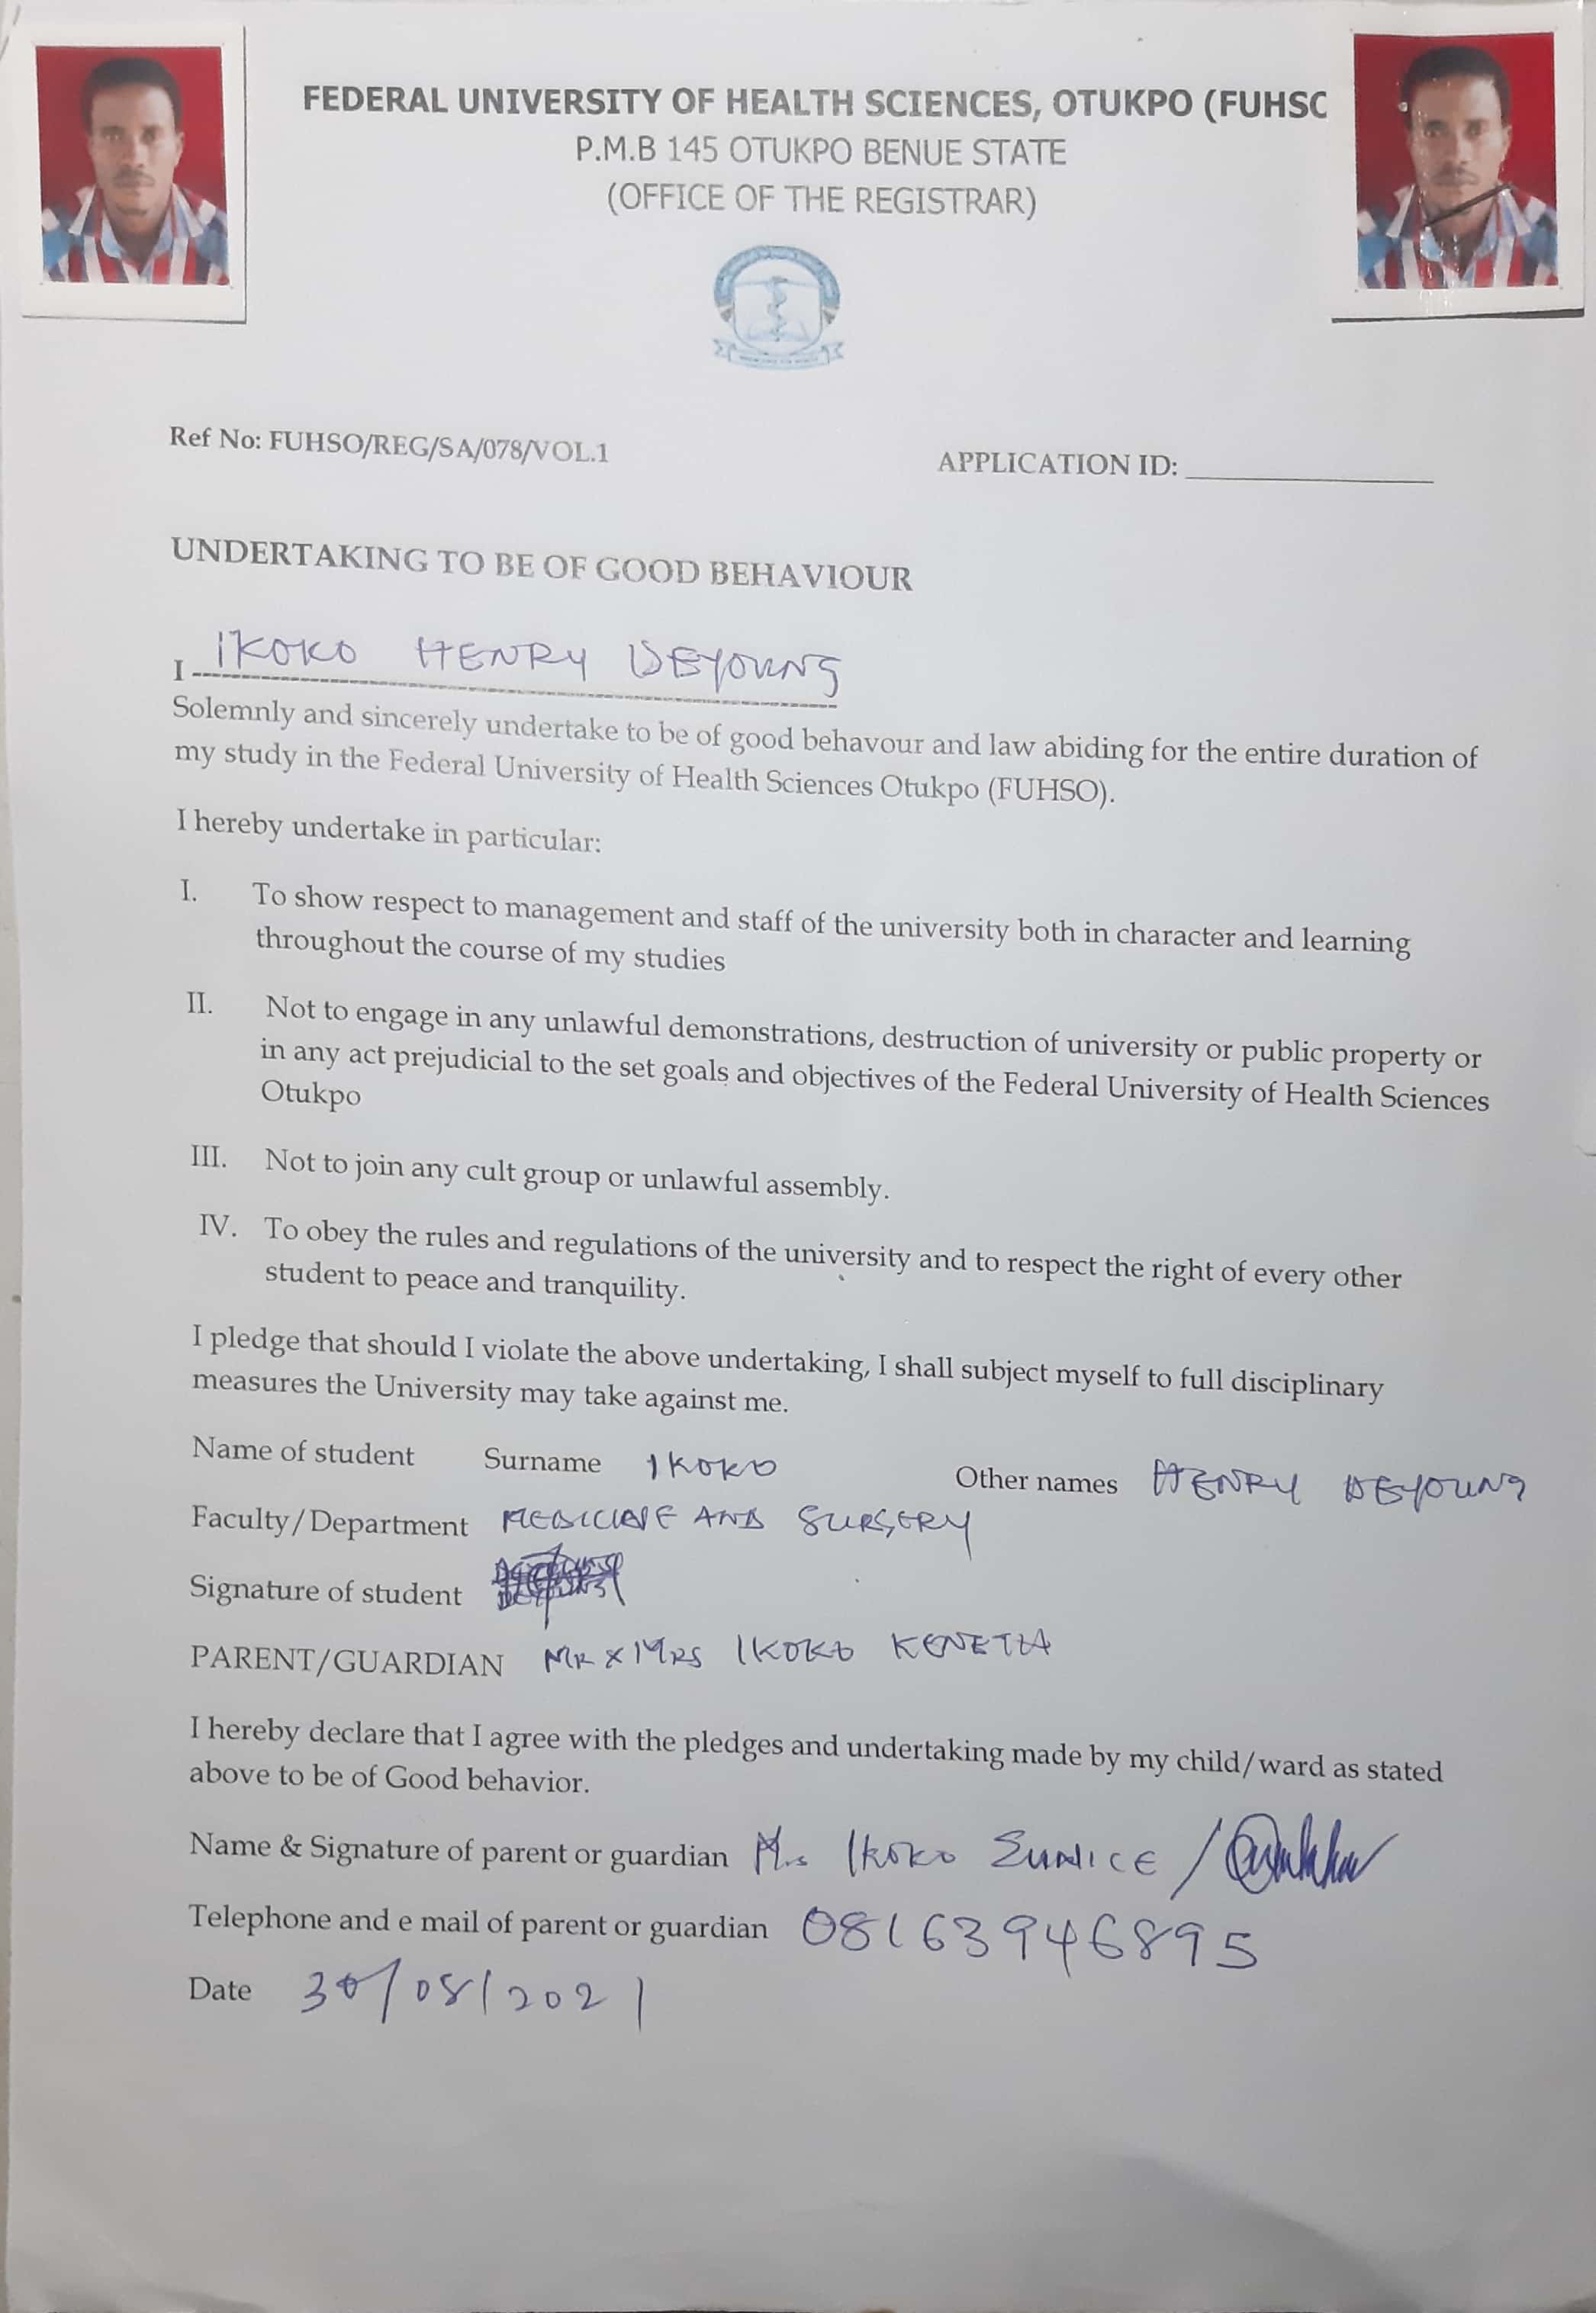 FEDERAL UNIVERSITY OF HEALTH SCIENCES, OTUKPO (FUHSC
P.M.B 145 OTUKPO BENUE STATE
(OFFICE OF THE REGISTRAR)
Ref No: FUHSO/REG/SA/078/VOL.1
APPLICATION ID:
UNDERTAKING TO BE OF GOOD BEHAVIOUR
I IKOKO HENRY DEYOUNG
Solemnly and sincerely undertake to be of good behavour and law abiding for the entire duration of
my study in the Federal University of Health Sciences Otukpo (FUHSO).
I hereby undertake in particular:
I. To show respect to management and staff of the university both in character and learning
throughout the course of my studies
II. Not to engage in any unlawful demonstrations, destruction of university or public property or
in any act prejudicial to the set goals and objectives of the Federal University of Health Sciences
Otukpo
III. Not to join any cult group or unlawful assembly.
IV. To obey the rules and regulations of the university and to respect the right of every other
student to peace and tranquility.
I pledge that should I violate the above undertaking, I shall subject myself to full disciplinary
measures the University may take against me.
Name of student Surname IKOKO Other names HENRY DEYOUNG
Faculty/Department MEDICINE AND SURGERY
Signature of student
PARENT/GUARDIAN MR & MRS IKOKO
I hereby declare that I agree with the pledges and undertaking made by my child/ward as stated
above to be of Good behavior.
Name & Signature of parent or guardian Mrs IKOKO EUNICE /
Telephone and e mail of parent or guardian 08163946895
Date 30/08/2021